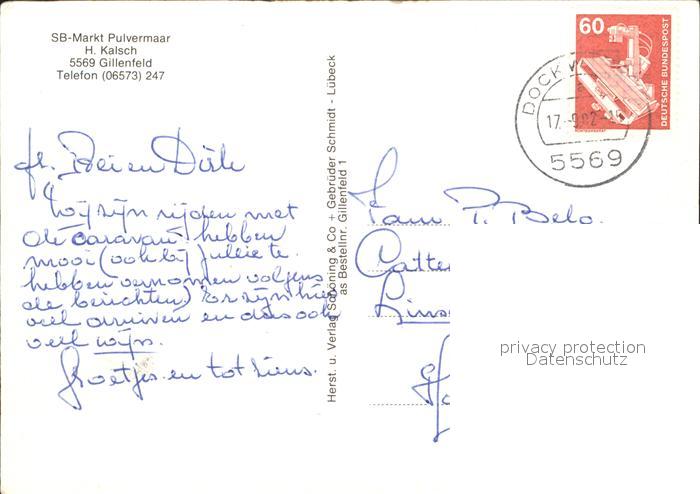 SB-Markt Pulvermaar
H. Kalsch
5569 Gillenfeld
Telefon (06573) 247
60
DEUTSCHE BUNDESPOST
DOCKW
17.-9.82-15
5569
en Dirk
Wij zijn rijden met
de caravan hebben
mooi (ook bij jullie te
hebben vernomen volgens
de berichten) Er zijn hier
veel druiven en dus ook
veel wijn.
Groetjes en tot ziens.
Herst. u. Verlag Schöning & Co + Gebrüder Schmidt - Lübeck
as Bestellnr. Gillenfeld 1
Fam P. Belo.
Catte
Lins
privacy protection
Datenschutz